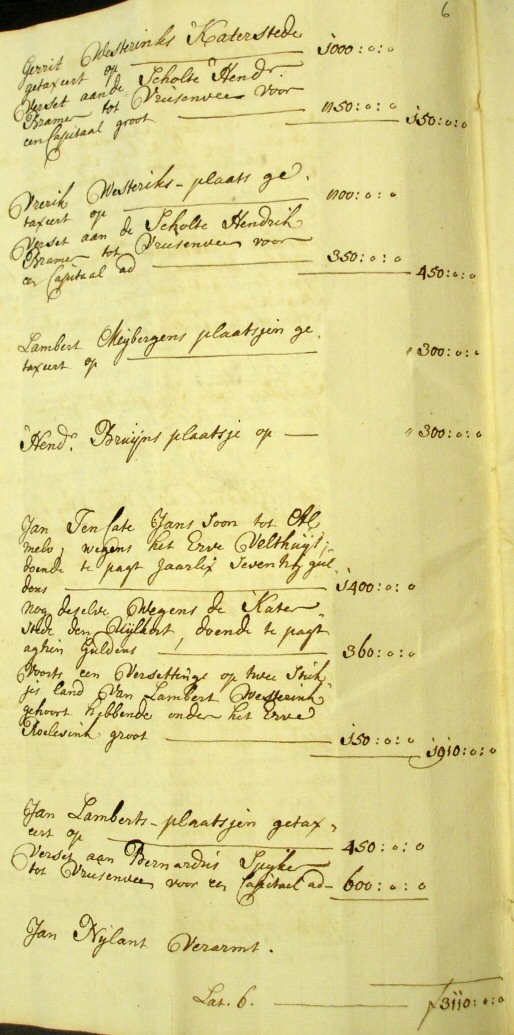 6
Gerrit Westerinks Katerstede
getaxeert op 1000:0:0
Verset aan de Scholte Hendr.
Bramer tot Vriesenvee voor
een Capitaal groot 850:0:0 150:0:0
Vrerik Westeriks-plaats ge,
taxeert op 800:0:0
Verset aan de Scholte Hendrik
Bramer tot Vriesenvee voor
een Capitaal ad 350:0:0 450:0:0
Lambert Meijbergens plaatsjen ge,
taxeert op 300:0:0
Hend. Bruijns plaatsje op 300:0:0
Jan Ten Cate Jans Soon tot Al
melo, wegens het Erve Velthuijs,
doende te pagt Jaarlix Seventig gul
dens 1400:0:0
nog deselve Wegens de Kater
stede den Uijlkort, doende te pagt
agtien Guldens 360:0:0
Voorts een Versettinge op twee Stuk
jes land Van Lambert Westerink
gehoort hebbende onder het Erve
Roelevink groot 150:0:0 1910:0:0
Jan Lamberts-plaatsjen getax,
eert op 450:0:0
Verset aan Bernardus Spijker
tot Vriesenvee voor een Capitael ad 600:0:0
Jan Nylant Verarmt.
Lat. 6. f 3110:0:0